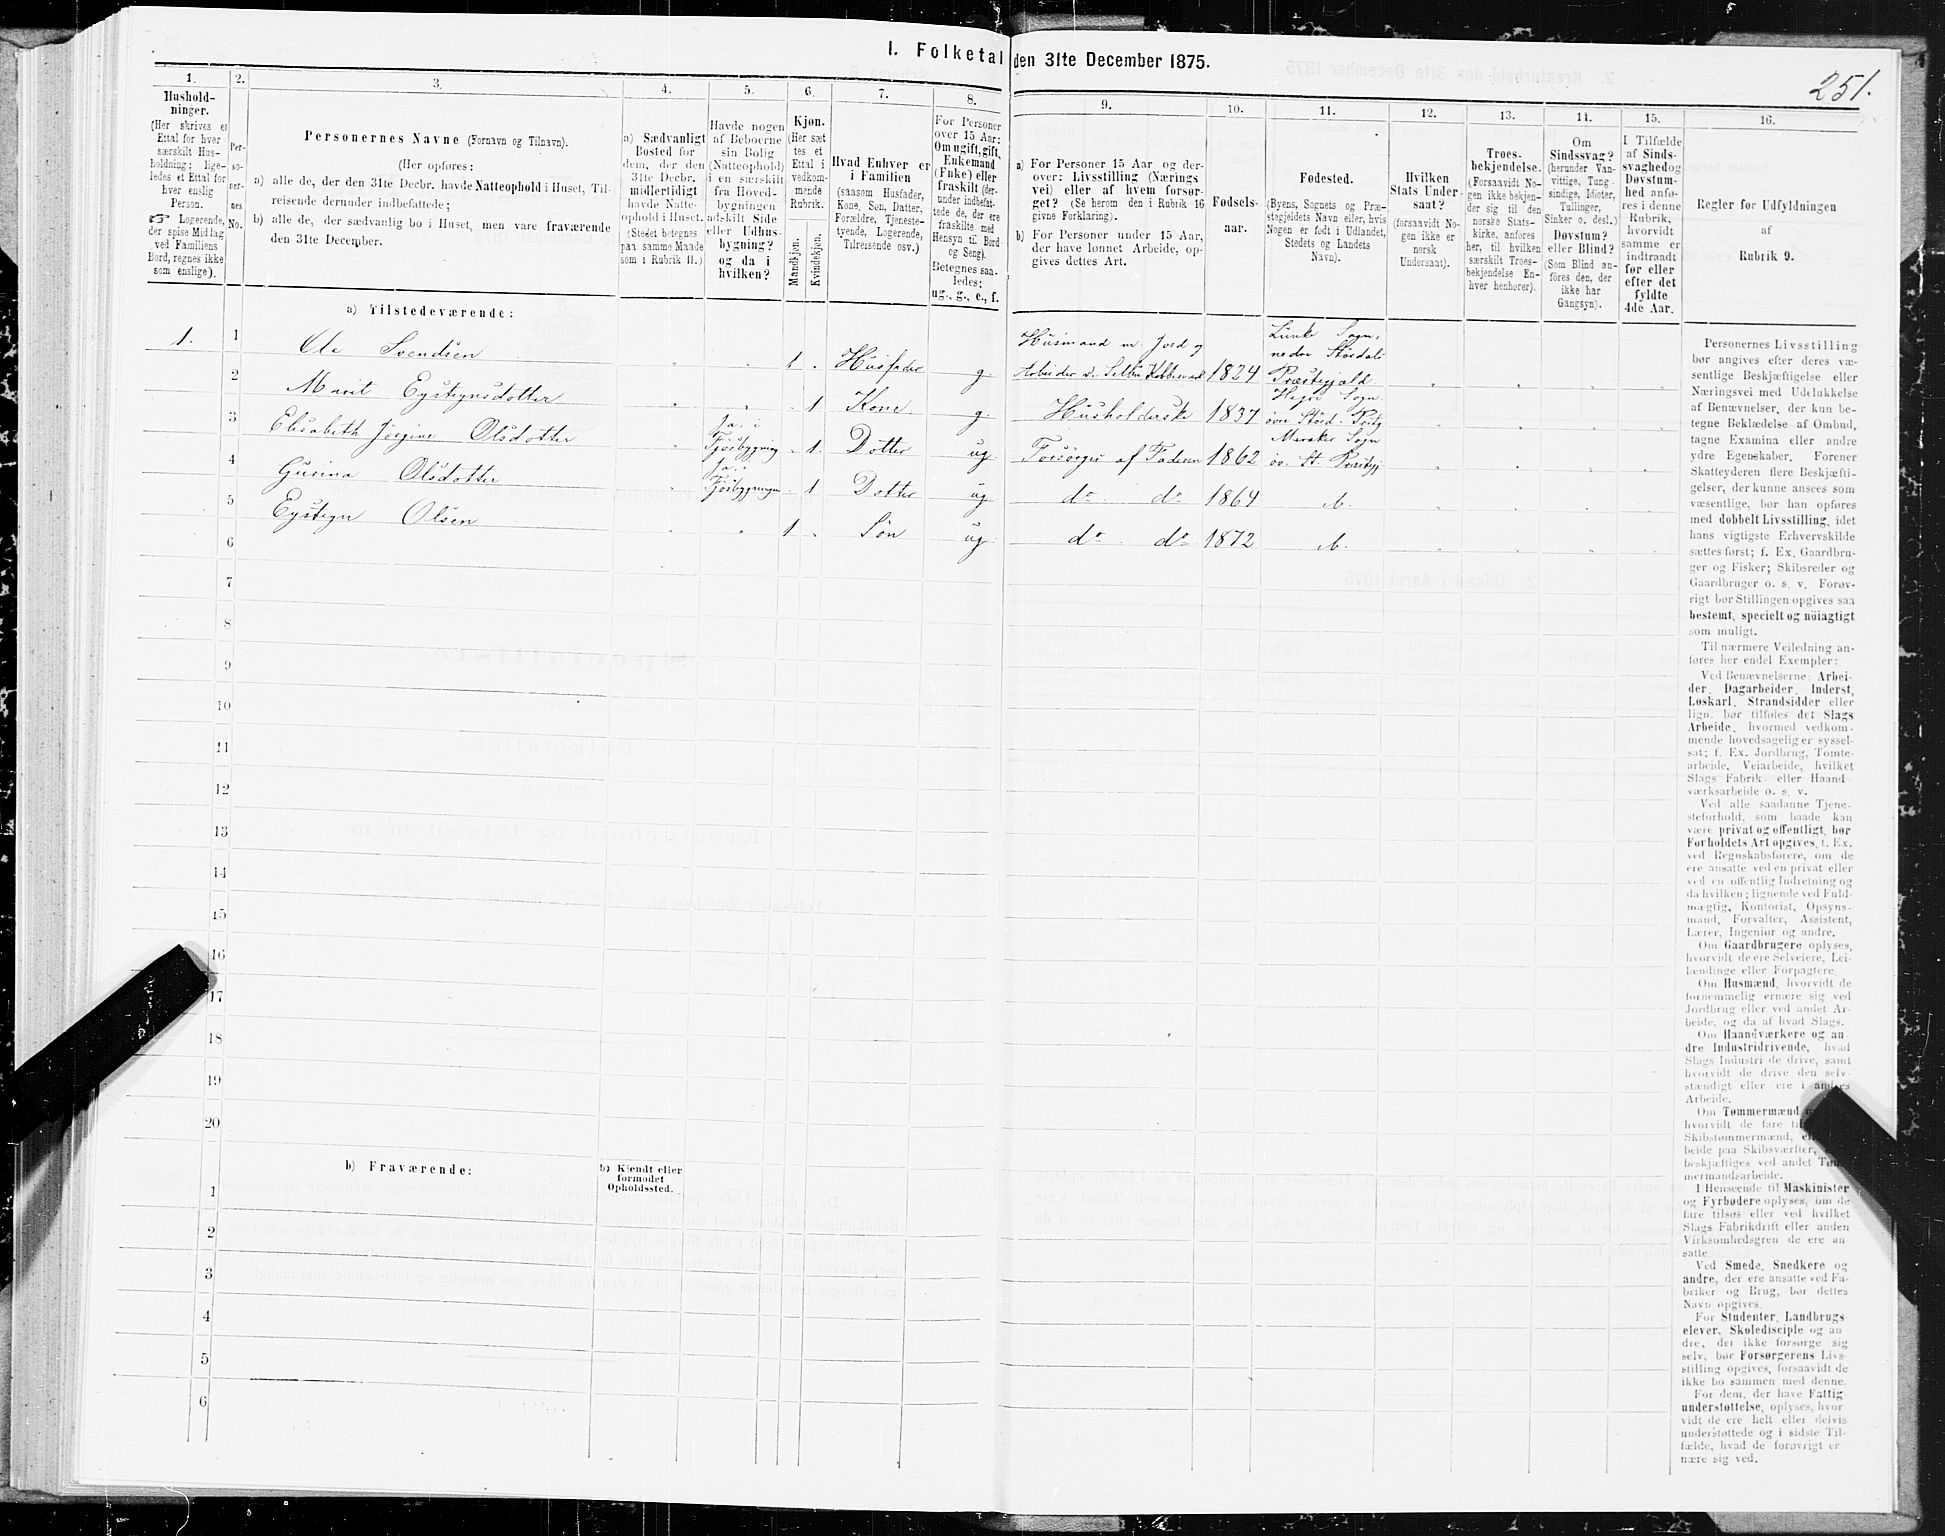 I. Folketal den 31te December 1875.
251.
1.
Hushold-
ninger.
(Her skrives et
Ettal for hver
særskilt Hus-
holdning; lige-
ledes et Ettal for
hver enslig
Person.
☞ Logerende,
der spise Middag
ved Familiens
Bord, regnes ikke
som enslige).
2.
Per-
so-
ner-
nes
No.
3.
Personernes Navne (Fornavn og Tilnavn).
(Her opføres:
a) alle de, der den 31te Decbr. havde Natteophold i Huset, Til-
reisende derunder indbefattede;
b) alle de, der sædvanlig bo i Huset, men vare fraværende
den 31te December.
4.
a) Sædvanligt
Bosted for
dem, der den
31te Decbr.
midlertidigt
havde Natte-
ophold i Huset.
(Stedet betegnes
paa samme Maade
som i Rubrik 11.)
5.
Havde nogen
af Beboerne
sin Bolig
(Natteophold)
i en særskilt
fra Hoved-
bygningen
adskilt Side
eller Udhus-
bygning?
og da i
hvilken?
6.
Kjøn.
(Her sæt
tes et
Ettal i
vedkom-
mende
Rubrik.
Mandkjøn.
Kvindekjøn.
7.
Hvad Enhver er
i Familien
(saasom Husfader,
Kone, Søn, Datter,
Forældre, Tjeneste-
tyende, Logerende,
Tilreisende osv.)
8.
For Personer
over 15 Aar:
Om ugift, gift,
Enkemand
(Enke) eller
fraskilt (der-
under indbefat-
tede de, der ere
fraskilte med
Hensyn til Bord
og Seng).
Betegnes saa-
ledes:
ug., g., e., f.
9.
a) For Personer 15 Aar og der-
over: Livsstilling (Nærings
vei) eller af hvem forsør-
get? (Se herom den i Rubrik 16
givne Forklaring).
b) For Personer under 15 Aar,
der have lønnet Arbeide, op-
gives dettes Art.
10.
Fødsels-
aar.
11.
Fødested.
(Byens, Sognets og Præ-
stegjeldets Navn eller, hvis
Nogen er født i Udlandet,
Stedets og Landets
Navn).
12.
Hvilken
Stats Under-
saat?
(forsaavidt No-
gen ikke er
norsk
Undersaat).
13.
Troes-
bekjendelse.
(Forsaavidt No-
gen ikke bekjen-
der sig til den
norske Stats-
kirke, anføres
her, til hvilken
særskilt Troes-
bekjendelse En-
hver henhører).
14.
Om
Sindssvag?
(herunder Van-
vittige, Tung-
sindige, Idioter,
Tullinger,
Sinker o. desl.)
Døvstum?
eller Blind?
(Som Blind an-
føres den, der
ikke har
Gangsyn).
15.
I Tilfælde
af Sinds-
svaghed og
Døvstum-
hed anfø-
res i denne
Rubrik,
hvorvidt
samme er
indtraadt
før eller
efter det
fyldte
4de Aar.
16.
Regler før Udfyldningen
af
Rubrik 9.
a) Tilstedeværende:
1. 1 Ole Svendsen 1. Husfader g. Husmand m. Jord og Arbeider v. Selbu Kobberværk 1824 Lunke Sogn, nedre Stördals Præstegjeld
2 Marit Eysteynsdotter 1 Kone g. Husholderske 1837 Hegre Sogn övre Störd. Prstg
3 Elisabeth Jörgine Olsdotter Ja, i Fjösbygning 1. Dotter ug. Forsörges af Faderen 1862 Meraker Sogn öv. St. Prestegj
4 Gurina Olsdotter Ja, i Fjösbygningen 1 Dotter ug do do 1864
5 Eysteyn Olsen 1 Sön ug. do do 1872
6
7
8
9
10
11
12
13
14
15
16
17
18
19
20
b) Fraværende:
b) Kjendt eller
formodet
Opholdssted.
1
2
3
4
5
6
Personernes Livsstilling
bør angives efter deres væ-
sentlige Beskjæftigelse eller
Næringsvei med Udelukkelse
af Benævnelser, der kun be-
tegne Beklædelse af Ombud,
tagne Examina eller andre
ydre Egenskaber. Forener
Skatteyderen flere Beskjæfti-
gelser, der kunne ansees som
væsentlige, bør han opføres
med dobbelt Livsstilling, idet
hans vigtigste Erhvervskilde
sættes først; f. Ex. Gaardbru-
ger og Fisker; Skibsreder og
Gaardbruger o. s. v. Forøv-
rigt bør Stillingen opgives saa
bestemt, specielt og nøiagtigt
som muligt.
Til nærmere Veiledning an-
føres her endel Exempler:
Ved Benævnelserne: Arbei-
der, Dagarbeider, Inderst,
Løskarl, Strandsidder eller
lign. bør tilføies det Slags
Arbeide, hvormed vedkom-
mende hovedsagelig er syssel-
sat; f. Ex. Jordbrug, Tomte-
arbeide, Veiarbeide, hvilket
Slags Fabrik- eller Haand-
værksarbeide o. s. v.
Ved alle saadanne Tjene-
steforhold, som baade kan
være privat og offentligt, bør
Forholdets Art opgives, f. Ex.
ved Regnskabsførere, om de
ere ansatte ved en privat eller
ved en offentlig Indretning og
da hvilken; lignende ved Fuld-
mægtig, Kontorist, Opsyns-
mand, Forvalter, Assistent,
Lærer, Ingeniør og andre.
Om Gaardbrugere oplyses,
hvorvidt de ere Selveiere, Lei-
lændinge eller Forpagtere.
Om Husmænd, hvorvidt de
fornemmelig ernære sig ved
Jordbrug eller ved andet Ar-
beide, og da af hvad Slags.
Om Haandværkere og an-
dre Industridrivende, hvad
Slags Industri de drive, samt
hvorvidt de drive den selv-
stændigt eller ere i andres
Arbeide.
Om Tømmermænd
hvorvidt de fare
Skibstømmermænd,
beide paa Skibsværfter,
beskjæftiges ved andet Tøm-
mermandsarbeide.
I Henseende til Maskinister
og Fyrbødere oplyses, om de
fare tilsøs eller ved hvilket
Slags Fabrikdrift eller anden
Virksomhedsgren de ere an
satte.
Ved Smede, Snedkere og
andre, der ere ansatte ved Fa-
briker og Brug, bør dettes
Navn opgives.
For Studenter, Landbrugs
elever, Skoledisciple og an
dre, der ikke forsørge sig
selv, bør Forsørgerens Livs-
stilling opgives, forsaavidt de
ikke bo sammen med denne.
For dem, der have Fattig
understøttelse, oplyses, hvor
vidt de ere helt eller delvis
understøttede og i sidste Til-
fælde, hvad de forøvrigt er
nære sig ved.